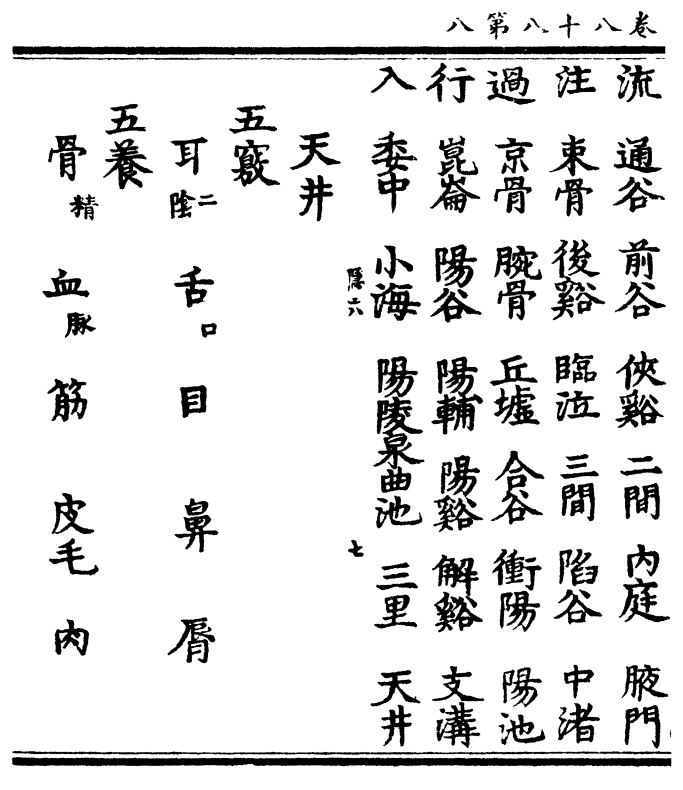 卷八十八第八
流 通谷 前谷 俠谿 二間 內庭 腋門
注 束骨 後谿 臨泣 三間 陷谷 中渚
過 京骨 腕骨 丘墟 合谷 衝陽 陽池
行 崑崙 陽谷 陽輔 陽谿 解谿 支溝
入 委中 小海 陽陵泉 曲池 三里 天井
隱六 七
天井
五竅
耳二陰 舌口 目 鼻 脣
五養
骨精 血脉 筋 皮毛 肉